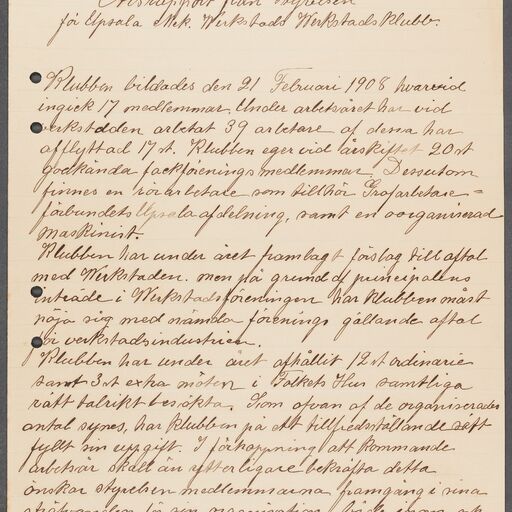 Årsrapport från Styrelsen
för Upsala Mek. Werkstads Werkstadsklubb.
Klubben bildades den 21 Februari 1908 hvarvid
ingick 17 medlemmar. Under arbetsåret har vid
verkstaden arbetat 39 arbetare af dessa har
afflyttad 17 st. Klubben eger vid årsskiftet 20 st
godkända fackföreningsmedlemmar. Dessutom
finnes en rörarbetare som tillhör Grofarbetare=
förbundets Upsala afdelning, samt en oorganiserad
Maskinist.
Klubben har under året framlagt förslag till aftal
med Werkstaden. men på grund af principalens
inträde i Werkstadsföreningen har klubben måst
nöja sig med nämda förenings gällande aftal
för verkstadsindustrien.
Klubben har under året afhållit 12 st ordinarie
samt 3 st extra möten i Folkets Hus samtliga
rätt talrikt besökta. Som ofvan af de organiserades
antal synes, har klubben på ett tillfredsställande sätt
fyllt sin uppgift. I förhoppning att kommande
arbetsår skall än ytterligare bekräfta detta
önskar styrelsen medlemmarna framgång i sina
för sin organisation